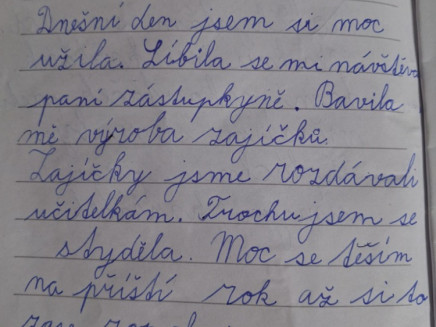 Dnešní den jsem si moc
užila. Líbila se mi návštěva
paní zástupkyně. Bavila
mě výroba zajíčků.
Zajíčky jsme rozdávali
učitelkám. Trochu jsem se
styděla. Moc se těším
na příští rok až si to